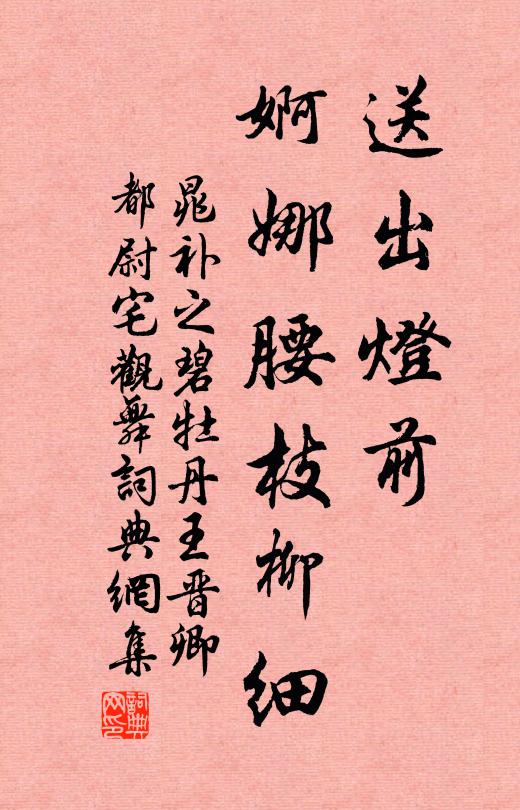 送出燈前
婀娜腰枝柳細
晁补之碧牡丹王晋卿
都尉宅觀舞詞典網集
詞典
网印